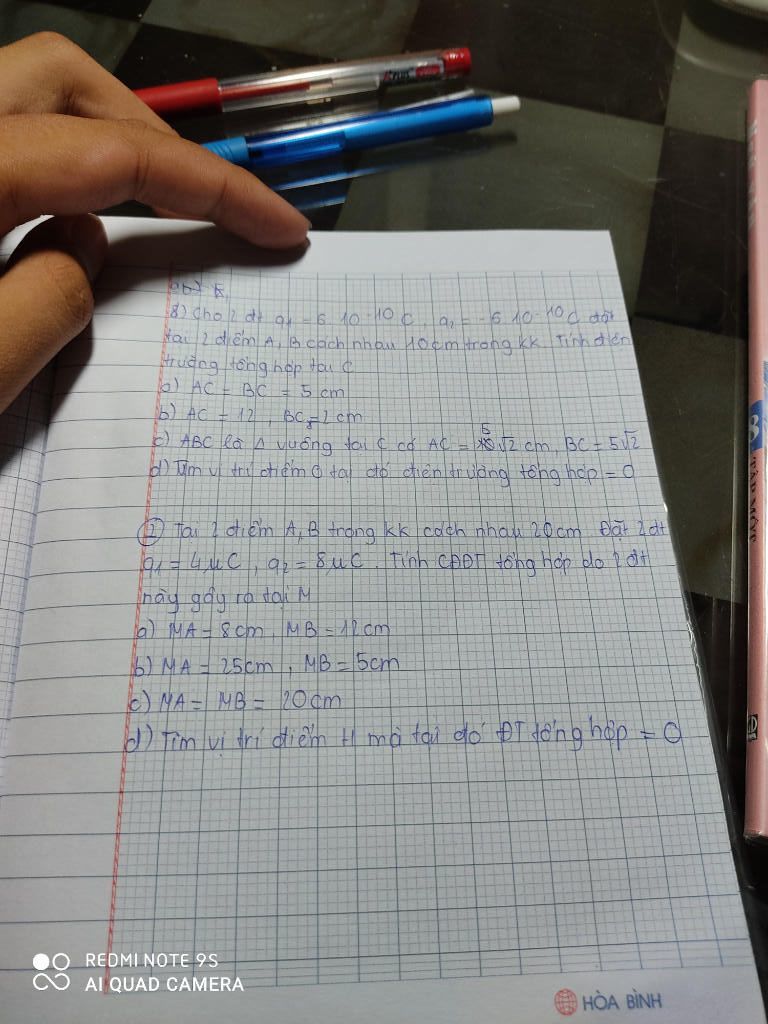 8) Cho 2 đt q1 = 6.10-10 C, q2 = -6.10-10 C đặt
tại 2 điểm A, B cách nhau 10cm trong kk. Tính điện
trường tổng hợp tại C
a) AC = BC = 5 cm
b) AC = 12, BC = 2 cm
c) ABC là Δ vuông tại C có AC = 5√2 cm, BC = 5√2
d) Tìm vị trí điểm O tại đó điện trường tổng hợp = 0
② Tại 2 điểm A, B trong kk cách nhau 20cm. Đặt 2 đt
q1 = 4μC, q2 = 8μC. Tính CĐĐT tổng hợp do 2 đt
này gây ra tại M
a) MA = 8cm, MB = 12cm
b) MA = 25cm, MB = 5cm
c) MA = MB = 20cm
d) Tìm vị trí điểm H mà tại đó ĐT tổng hợp = 0
REDMI NOTE 9S
AI QUAD CAMERA
HÒA BÌNH